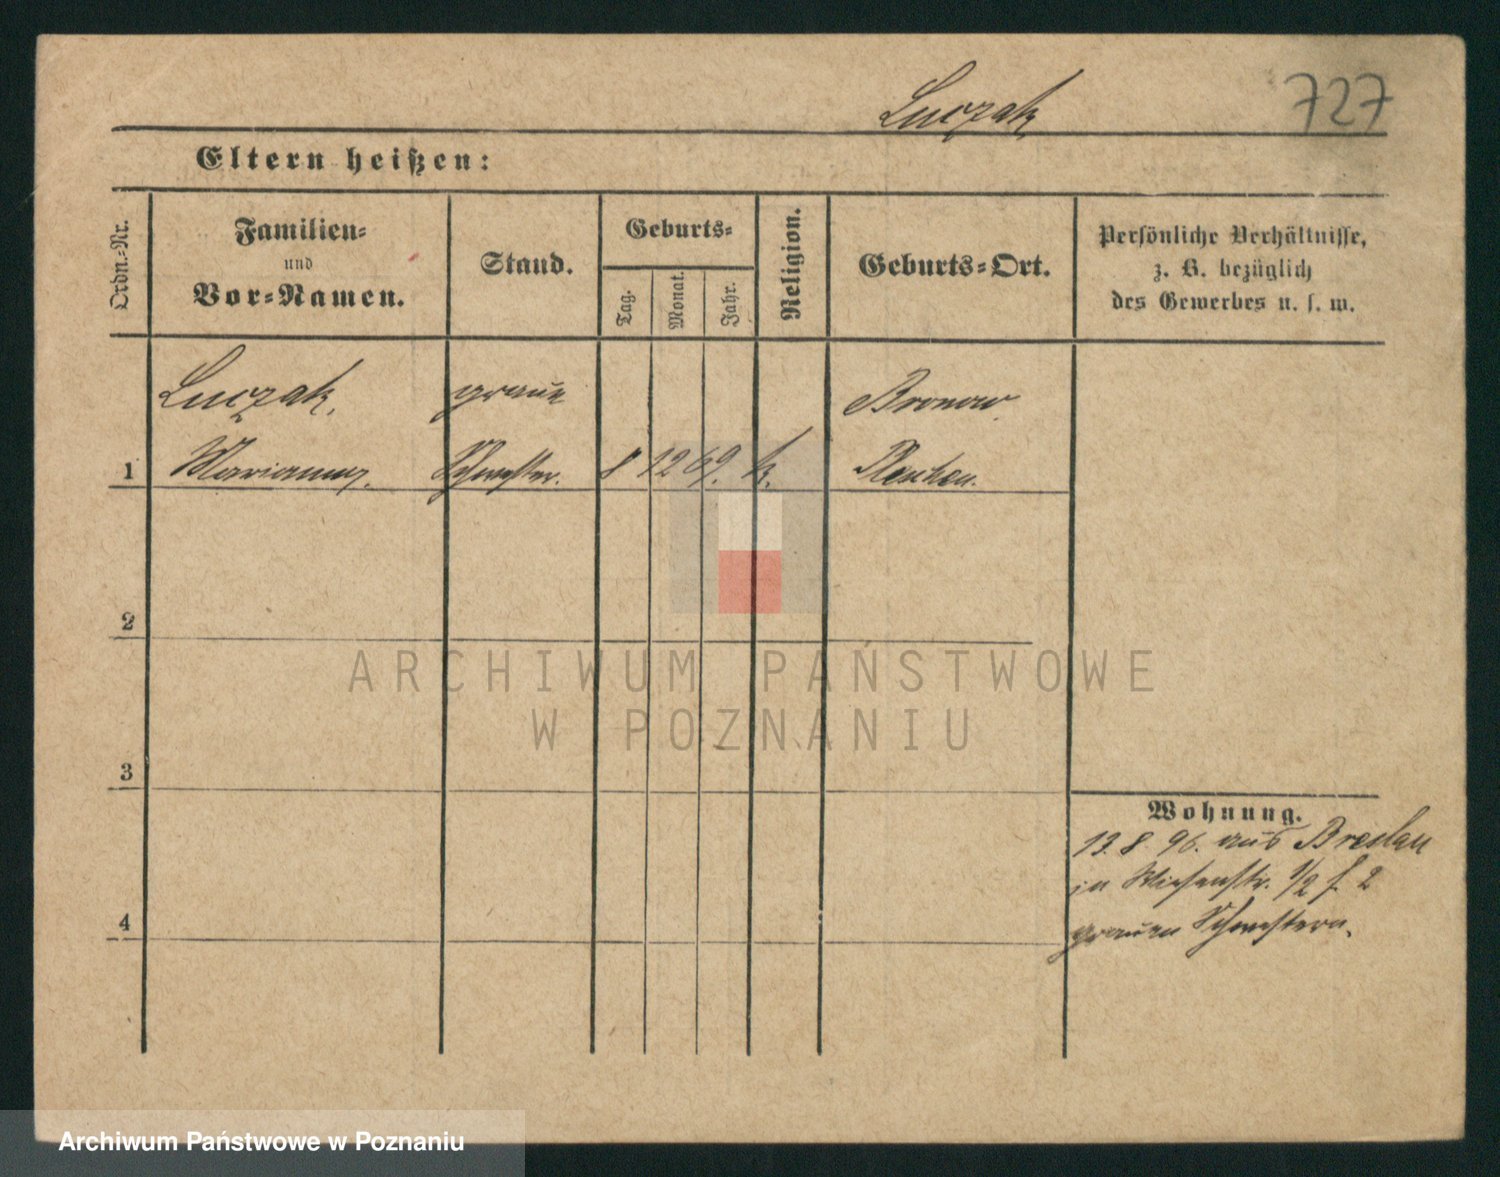 Luczak
727
Eltern heißen:
Ordn.-Nr.
Familien-
und
Vor-Namen.
Stand.
Geburts-
Tag.
Monat.
Jahr.
Religion.
Geburts-Ort.
Persönliche Verhältnisse,
z. B. bezüglich
des Gewerbes u. s. w.
Luczak,
graue
Bronow
1
Marianna.
Schwester.
8
12
69.
k.
Pleschen.
2
ARCHIWUM PAŃSTWOWE
W POZNANIU
3
Wohnung.
13. 8 96. aus Breslau
in Wiesenstr. 1/2 f. 2
grauen Schwestern.
4
Archiwum Państwowe w Poznaniu